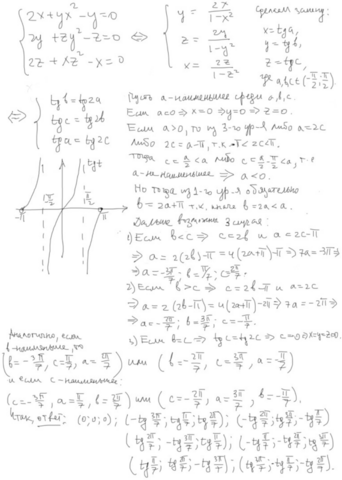 2x + yx² - y = 0
2y + zy² - z = 0
2z + xz² - x = 0
⇔
y = 2x/(1-x²)
z = 2y/(1-y²)
x = 2z/(1-z²)
Сделаем замену:
x = tg a,
y = tg b,
z = tg c,
где a,b,c ∈ (-π/2; π/2)
⇔
tg b = tg 2a
tg c = tg 2b
tg a = tg 2c
tg t
-π
-π/2
π/2
π
Пусть a - наименьшее среди a, b, c.
Если a=0 ⇒ x=0 ⇒ y=0 ⇒ z=0.
Если a>0, то из 3-го ур-я либо a=2c
либо 2c = a-π, т.к. -π<2c<π.
Тогда c = a/2 < a либо c = a/2 - π/2 < a, т.е.
a - не наименьшее ⇒ a<0.
Но тогда из 1-го ур-я обязательно
b = 2a+π т.к. иначе b=2a<a.
Дальше возможны 3 случая:
1) Если b<c ⇒ c=2b и a=2c-π
⇒ a = 2(2b)-π = 4(2a+π)-π ⇒ 7a=-3π ⇒
⇒ a=-3π/7; b=π/7; c=2π/7
2) Если b>c ⇒ c=2b-π и a=2c
⇒ a = 2(2b-π) = 4(2a+π)-2π ⇒ 7a=-2π ⇒
⇒ a=-2π/7; b=3π/7; c=-π/7.
3) Если b=c ⇒ tg c = tg 2c ⇒ c=0 ⇒ x=y=z=0.
Аналогично, если
b - наименьшее, то
(b=-3π/7, c=π/7, a=2π/7) или (b=-2π/7, c=3π/7, a=-π/7)
и если c - наименьшее:
(c=-3π/7, a=π/7, b=2π/7) или (c=-2π/7, a=3π/7, b=-π/7).
Итак, ответ: (0;0;0); (-tg 3π/7; tg π/7; tg 2π/7); (-tg 2π/7; tg 3π/7; -tg π/7)
(tg 2π/7; -tg 3π/7; tg π/7); (-tg π/7; -tg 2π/7; tg 3π/7)
(tg π/7; tg 2π/7; -tg 3π/7); (tg 3π/7; -tg π/7; -tg 2π/7).